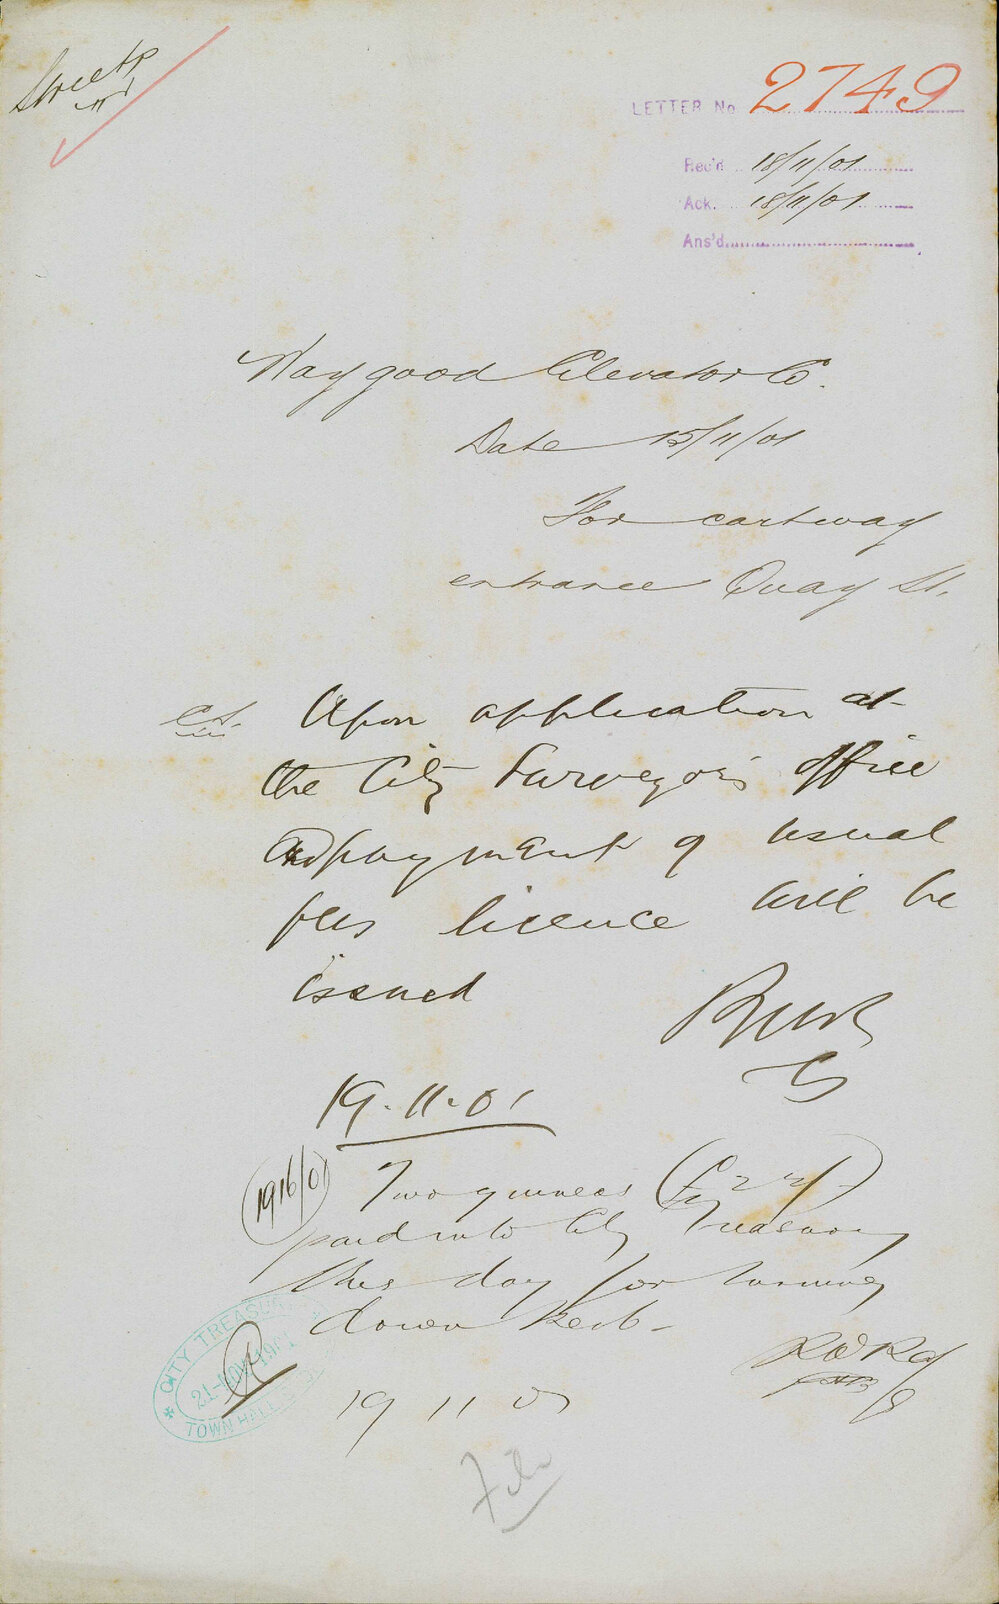 Streets
LETTER No 2749
Rec'd 18/11/01
Ack. 18/11/01
Ans'd
Waygood Elevator Co.
Date 15/11/01
For cartway
entrance Quay St.
Upon application at
the City Surveyor's office
and payment of usual
fees licence will be
issued
CS
19.11.01
1916/01
Two guineas (£2 2/-)
paid into City Treasury
this day for turning
down kerb -
CITY TREASURY
21 NOV 1901
TOWN HALL
19 11 01
File